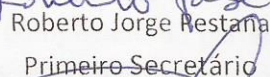 Roberto Jorge Pestana
Primeiro Secretário